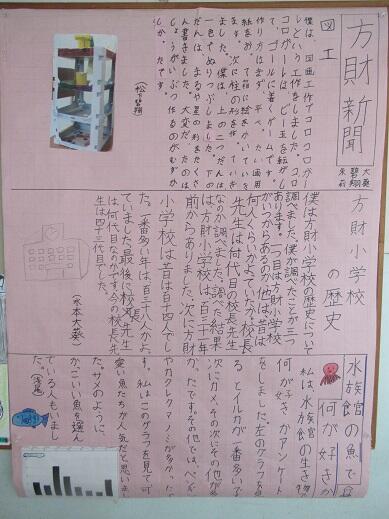 方財新聞
図工
僕は、図画工作でコロコロガー
レという工作をしました。コロ
コロガーレは、ビー玉を転がし
て、ゴールに着くゲームです。
作り方はまず、平べったい画用
ます。次に柱の形を作っていき
ました。僕は、上の二つのだんは
一色でぬりつぶしました。下の
だんは、まるや星の形をたくさ
ん書きました。大変だったのは
しょうがいぶつ作るのがむずか
しかったです。
方財小学校
の歴史
僕は方財小学校の歴史について
調べました。僕が調べたことが三つ
あります。一つ目は方財小学校
がいつからあるのか、他は、昔は
何人くらいがよっていたか、校長
先生は何代目の校長先生
なのか調べました。調べた結果
は方財小学校は、百三十一年
前からありました。次に方財
小学校は昔は百十四人でし
た。一番多い年は、百三十八人かよっ
ていました。最後に校長先生
は何代目なのかです。今の校長先
生は四十三代目でした。
水族館の魚で
何が好きか
私は、水族館の生き物で
何が好きかアンケート
をしました。左のグラフを見
ると、イルカが一番多いです。
次にカメ、その次にその他が多
かったです。その他では、ペンギン
やカクレクマノミが多かったで
す。私はこのグラフを見て可
愛い魚たちが人気だと思いまし
た。サメのように
かっこいい魚を選ん
でいる人もいまし
た。